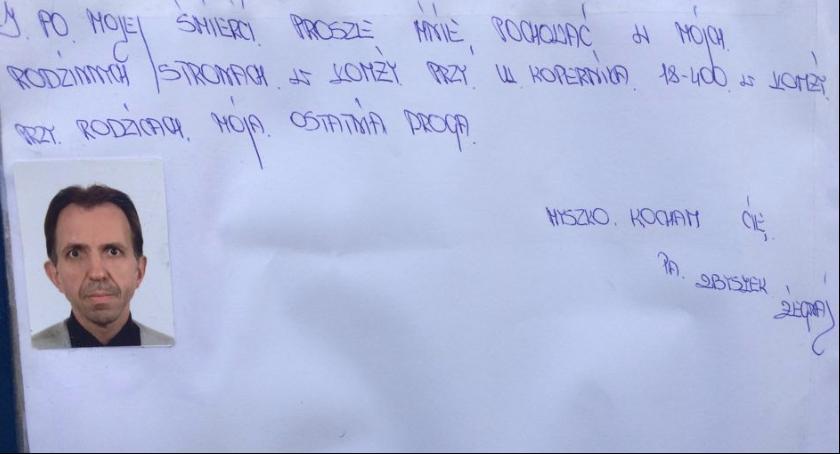 J. PO. MOJEJ ŚMIERCI. PROSZE MNIE POCHOWAĆ W MÓJCH
RODZINNYCH STRONACH. W ŁOMŻY. PRZY. UL KOPERNIKA. 18-400. W ŁOMŻY.
PRZY. RODZICACH. MOJA. OSTATNIA DROGA.
MYSZKO. KOCHAM CIĘ.
PA. ZBYSZEK ŻEGNAJ